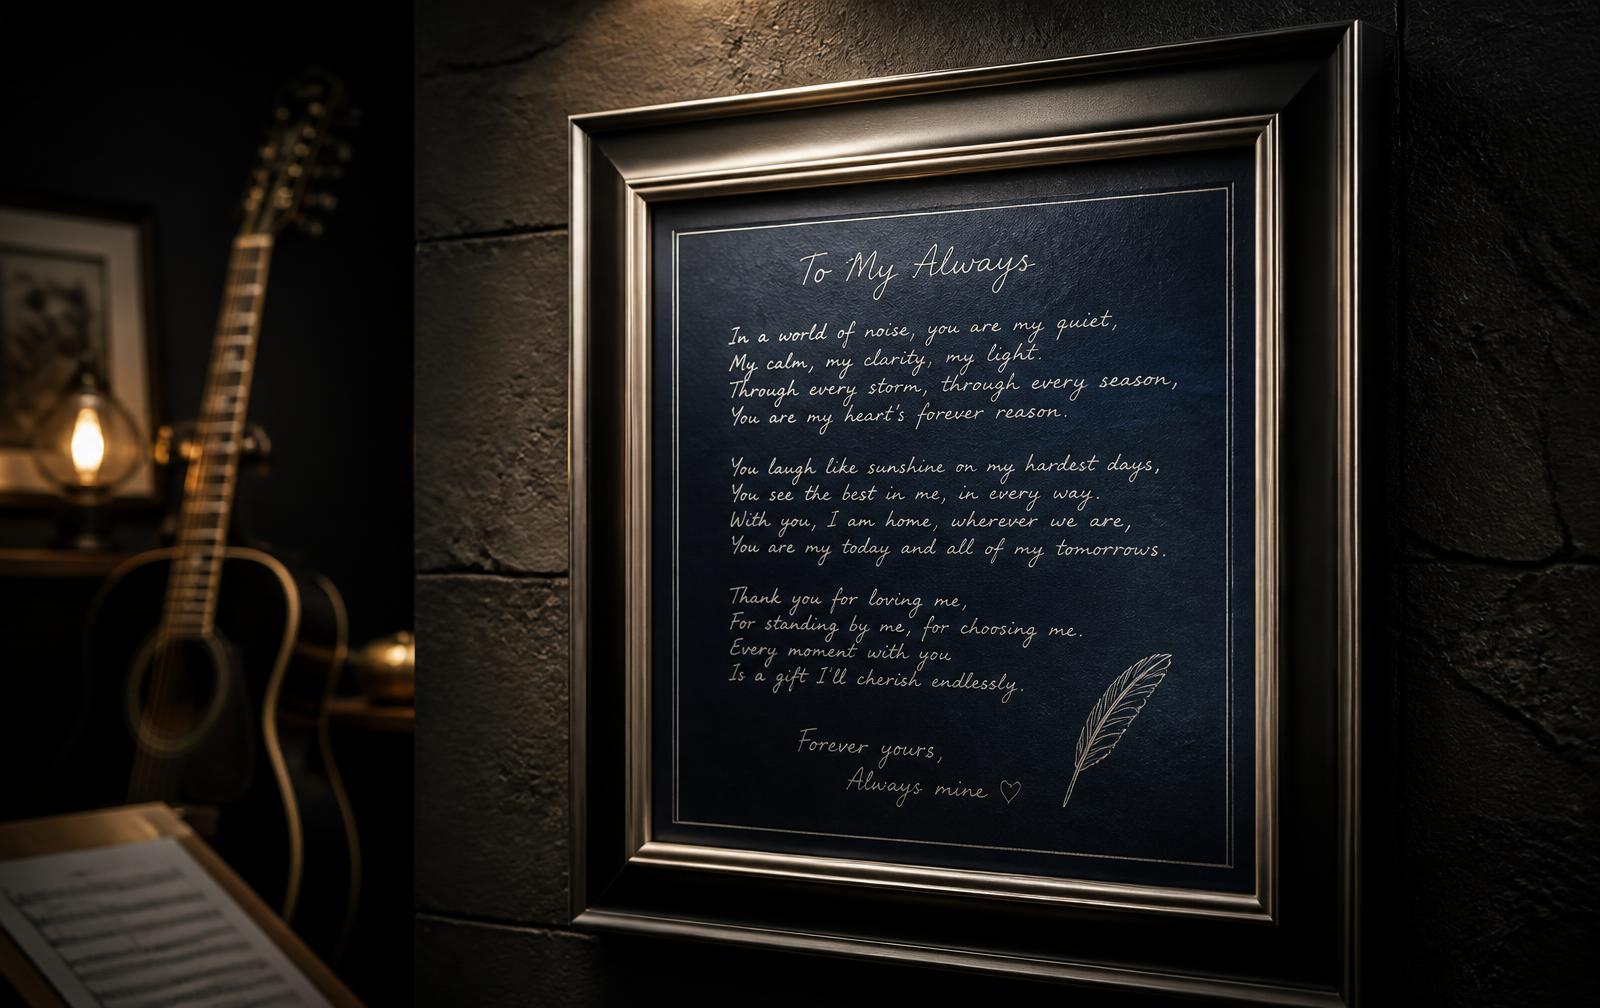 To My Always
In a world of noise, you are my quiet,
My calm, my clarity, my light.
Through every storm, through every season,
You are my heart's forever reason.
You laugh like sunshine on my hardest days,
You see the best in me, in every way.
With you, I am home, wherever we are,
You are my today and all of my tomorrows.
Thank you for loving me,
For standing by me, for choosing me.
Every moment with you
Is a gift I'll cherish endlessly.
Forever yours,
Always mine ♡